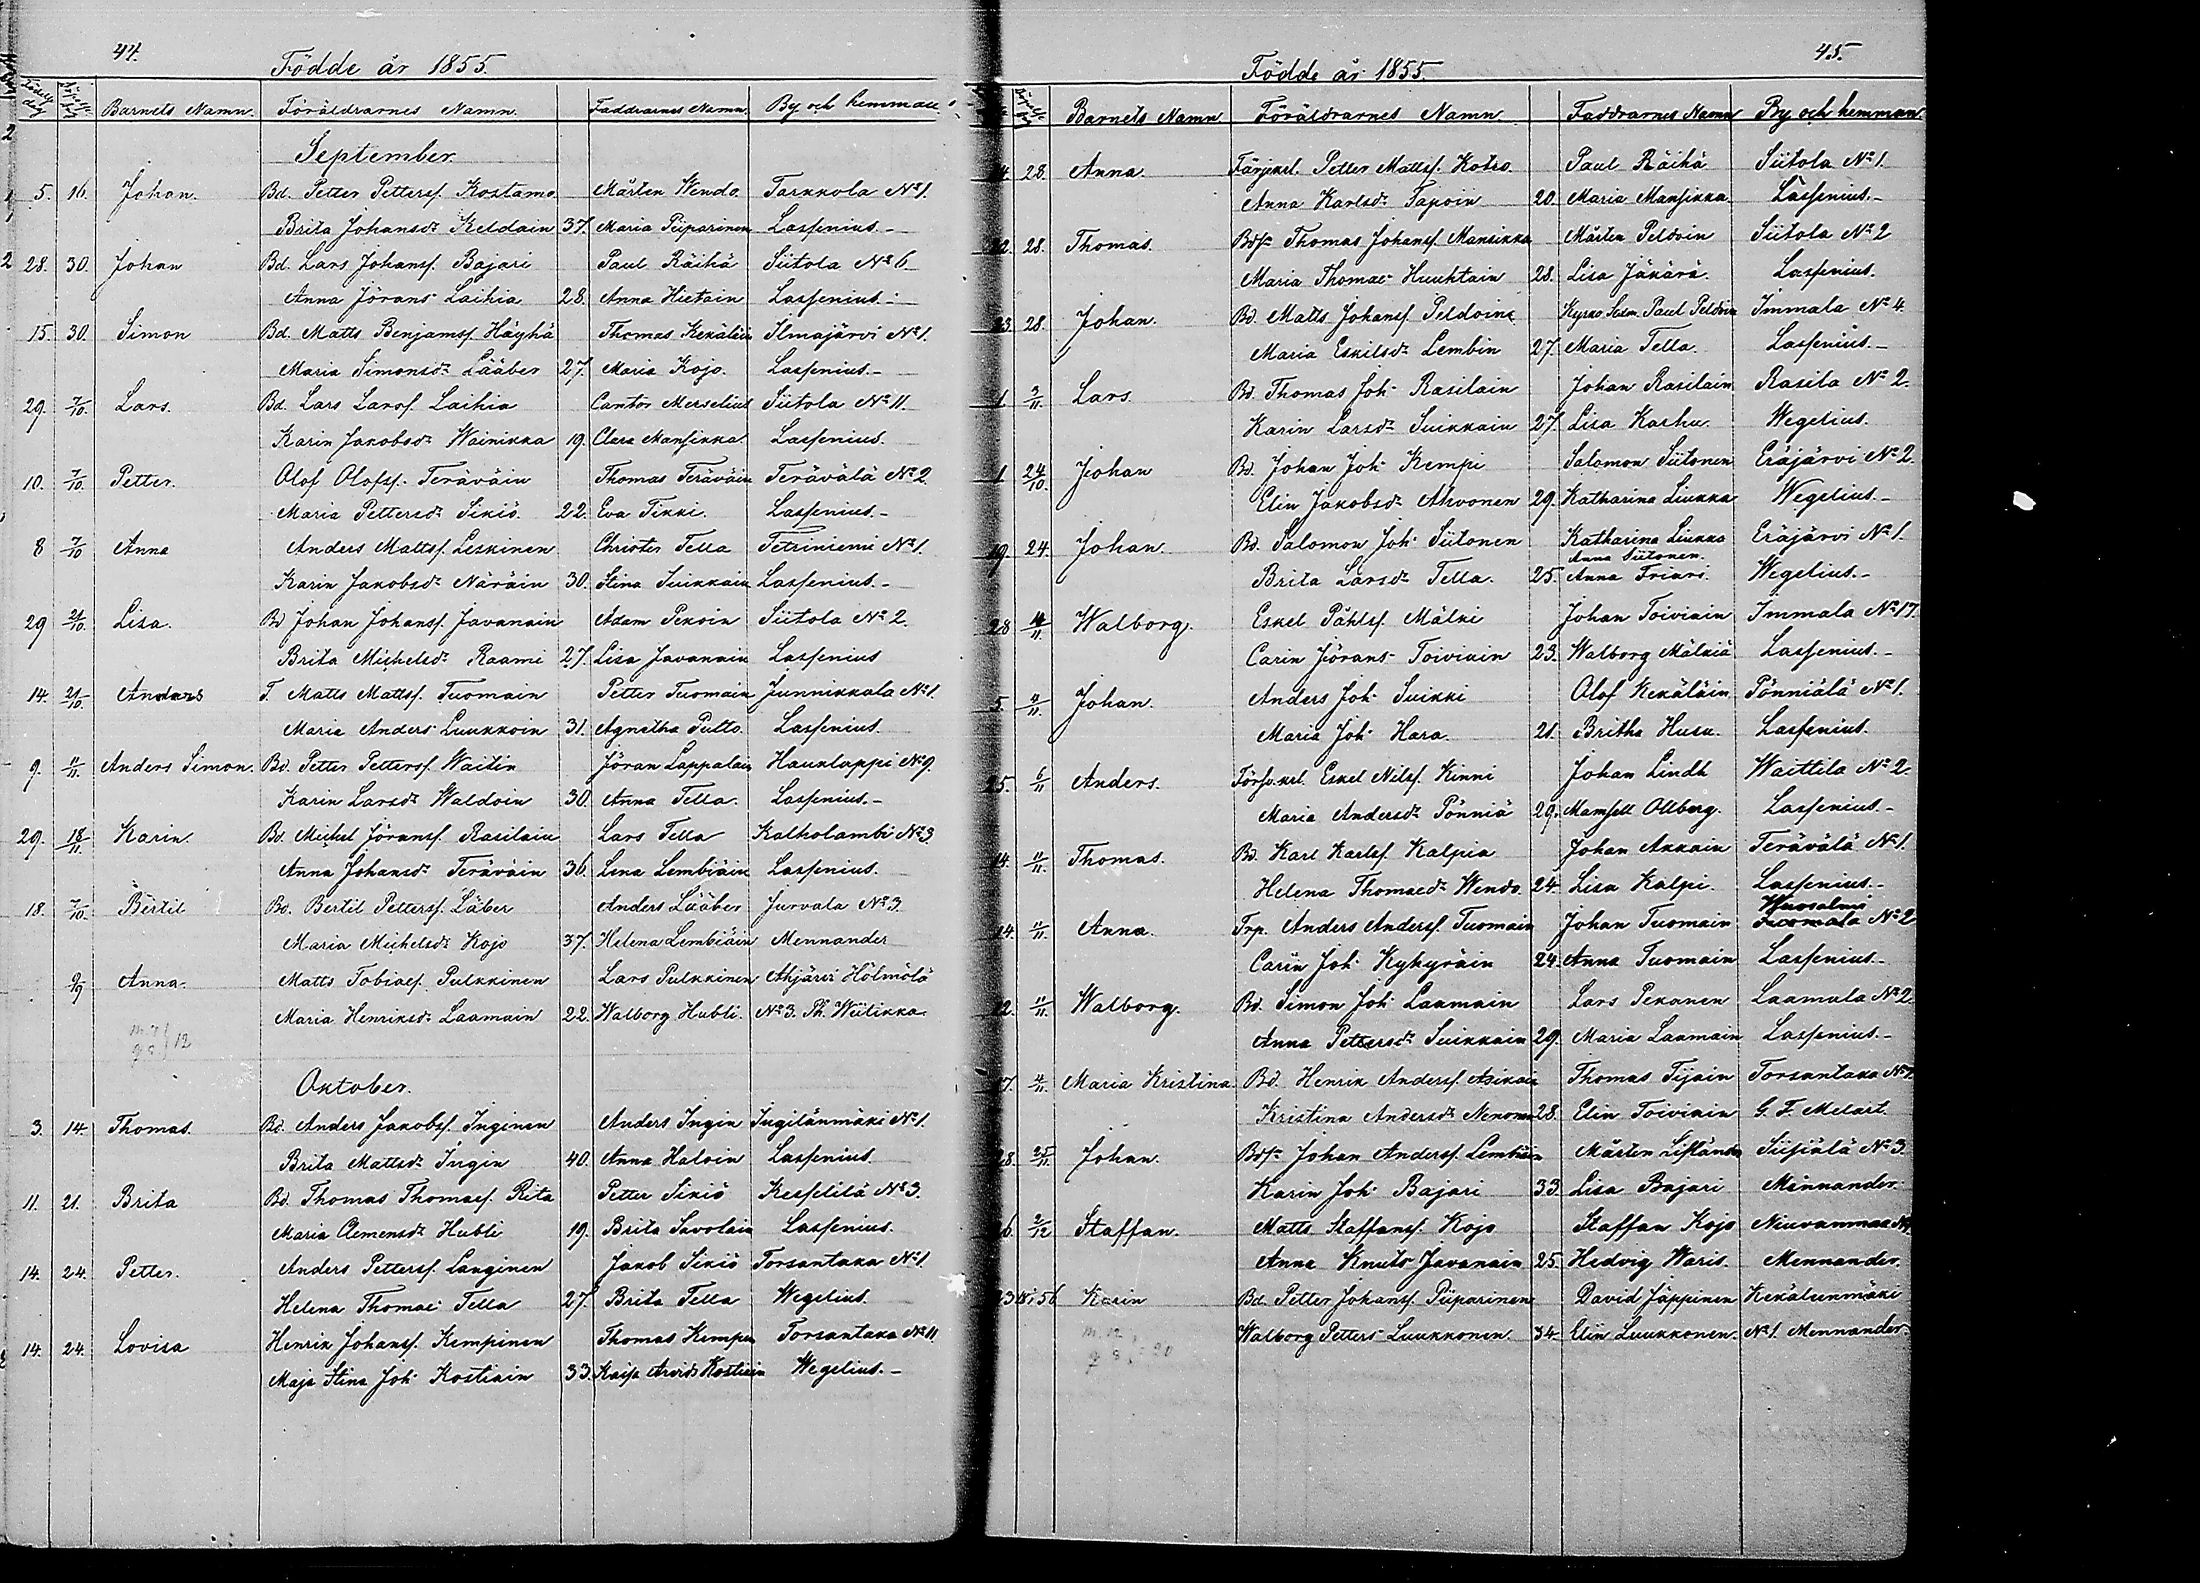 44.
Födde år 1855.
Födelse dag Döpelse dag Barnets Namn. Föräldrarnes Namn. Faddrarnes Namn. By och hemman
September
5. 16. Johan. Bd. Petter Petterss. Kostamo Mårten Wendo. Tarkkola No 1.
Brita Johansdr Keldain 37. Maria Piiparinen Lassenius.-
28. 30. Johan Bd. Lars Johanss. Bajari Paul Räihä Siitola No 6
Anna Jörans Laihia 28. Anna Hietain Lassenius.-
15. 30. Simon Bd. Matts Benjamss. Häyhä Thomas Kekäläin Ilmajärvi No 1.
Maria Simonsdr Lääber 27. Maria Kojo. Lassenius.-
29. 7/10. Lars. Bd. Lars Larss. Laihia Cantor Merselius Siitola No 11.
Karin Jakobsdr Wainikka 19. Clara Mansikka Lassenius.
10. 7/10. Petter. Olof Olofss. Teräväin Thomas Teräväin Terävälä No 2
Maria Pettersdr Sikiö. 22. Eva Tikki. Lassenius.-
8 7/10 Anna Anders Mattss. Leskinen Christer Tella Tetriniemi No 1.
Karin Jakobsdr Näräin 30. Stina Suikkain Lassenius.-
29 21/10. Lisa. Bd Johan Johanss. Javanain Adam Pekoin Siitola No 2.
Brita Michelsdr Raami 27. Lisa Javanain Lassenius
14. 21/10. Anders T. Matts Mattss. Tuomain Petter Tuomain Junnikkala No 1.
Maria Anders Luukkoin 31. Agnetha Putto. Lassenius.
9. 11/11. Anders Simon. Bd. Petter Petterss. Waitin Jöran Lappalain Hauklappi No 9.
Karin Larsdr Waldoin 30. Anna Tella. Lassenius.-
29. 18/11. Karin. Bd. Michel Jöranss. Rasilain Lars Tella Kalholambi No 3
Anna Johansdr Teräväin 36. Lena Lembiäin Lassenius.
18. 7/10. Bertil Bd. Bertil Petterss. Läber Anders Lääber Jurvala No 3.
Maria Michelsdr Kojo 37. Helena Lembiäin Mennander
9/9 Anna. Matts Tobiass. Pulkkinen Lars Pulkkinen Ahjärvi Hölmölä
Maria Henriksdr Laamain 22. Walborg Hubli. No 3. Th. Wiitikka
m. 7
q 5 } 12
Oktober.
3. 14. Thomas. Bd. Anders Jakobss. Inginen Anders Ingin Ingilänmäki No 1.
Brita Mattsdr Ingin 40. Anna Haloin Lassenius.
11. 21. Brita Bd. Thomas Thomass. Rita Petter Sikiö Kesselilä No 3.
Maria Clemensdr Hubli 19. Brita Savolain Lassenius.
14. 24. Petter. Anders Petterss. Langinen Jakob Sikiö Torsantaka No 1.
Helena Thomae Tella 27. Brita Tella Wegelius.
14. 24. Lovisa Henrik Johanss. Kempinen Thomas Kempin Torsantaka No 11
Maja Stina Joh. Kostiain 33. Kaisa Arvids Kostiain Wegelius.-
45.
Födde år 1855.
Barnets Namn Föräldrarnes Namn. Faddrarnes Namn By och hemman
28. Anna Färjekrl. Petter Mattss. Kotro. Paul Räihä Siitola No 1.
Anna Karlsdr Tapoin 20. Maria Mansikka. Lassenius.-
28. Thomas Bdsn Thomas Johanss. Mansikka Mårten Peldoin Siitola No 2
Maria Thomae Huuhtain 28. Lisa Jäkärä. Lassenius.
28. Johan. Bd. Matts Johanss. Peldoin Kyrko Paul Peldoin Immala No 4.
Maria Eskilsdr Lembin 27. Maria Tella. Lassenius.-
1 3/11. Lars. Bd. Thomas Joh. Rasilain Johan Rasilain. Rasila No 2.
Karin Larsdr Suikkain 27. Lisa Karhu. Wegelius.
1 24/10. Johan Bd. Johan Joh. Kempi Salomon Siitonen Eräjärvi No 2.
Elin Jakobsdr Ahvonen 29. Katharina Liukka Wegelius.-
19. 24. Johan. Bd. Salomon Joh. Siitonen Katharina Liukko Eräjärvi No 1.
Anna Siitonen.
Brita Larsdr Tella. 25. Anna Friari. Wegelius.-
28 4/11. Walborg. Eskel Påhlss. Mälki Johan Toiviain Immala No 17.
Carin Jörans Toiviain 23. Walborg Mälkiä Lassenius.-
5. 4/11. Johan. Anders Joh. Suikki Olof Kekäläin Pönniälä No 1.
Maria Joh. Hara. 21. Britha Husu. Lassenius.
25. 6/11 Anders. Eskel Nilss. Kinni Johan Lindh Waittila No 2.
Maria Andersdr Pönniä 29. Mamsell Ollberg. Lassenius.-
14. 11/11. Thomas. Bd. Karl Karlss. Kalpia Johan Akkain Terävälä No 1.
Helena Thomaedr Wendo. 24. Lisa Kalpi. Lassenius.-
Wuosalmi
14. 11/11. Anna. Trp. Anders Anderss. Tuomain Johan Tuomain Tuomala No 2
Carin Joh. Kykyräin 24. Anna Tuomain Lassenius.-
12. 11/11. Walborg. Bd. Simon Joh. Laamain Lars Pekonen Laamala No 2
Anna Pettersdr Suikkain 29. Maria Laamain Lassenius.-
17. 4/11. Maria Kristina. Bd. Henrik Anderss. Asikain Thomas Tijain Torsantaka No
Kristina Andersdr Nenonen 28. Elin Toiviain G. F. Melart.
28. 25/11. Johan. Bdsn Johan Anderss. Lembiäin Mårten Lifländer Siisiälä No 3.
Karin Joh. Bajari 33. Lisa Bajari Mennander.
26. 2/12 Staffan. Matts Staffanss. Kojo Staffan Kojo Niuvanmaa
Anna Knuts Javanain 25. Hedvig Waris. Mennander.
56 Karin Bd. Petter Johanss. Piiparinen David Jäppinen Kekäleenmäki
Walborg Petters Luukkonen. 34. Elin Luukkonen. No 1. Mennander.
m. 12
q 8 } 20